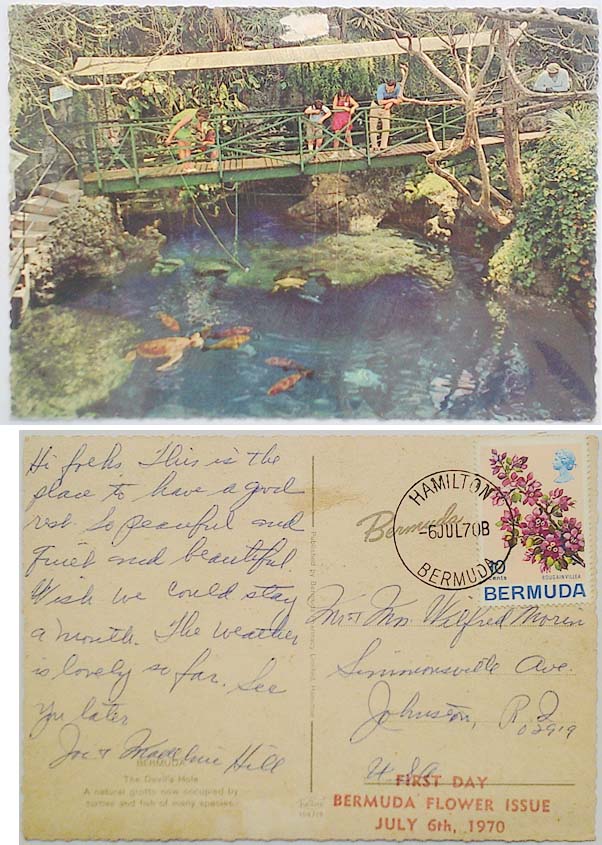 Hi folks. This is the
place to have a good
rest. So peaceful and
Quiet and beautiful
Wish we could stay
a month. The weather
is lovely so far. See
you later
Joe + Madeline Hill
BERMUDA
The Devil's Hole
A natural grotto now occupied by
turtles and fish of many species.
Published by Bermuda Limited, Hamilton
Bermuda
HAMILTON
-6JUL70B
BERMUDA
10 cents
BOUGAINVILLEA
BERMUDA
Mr + Mrs. Wilfred Morin
Simmonsville Ave.
Johnston, R.I.
02919
USA
FIRST DAY
BERMUDA FLOWER ISSUE
JULY 6th, 1970